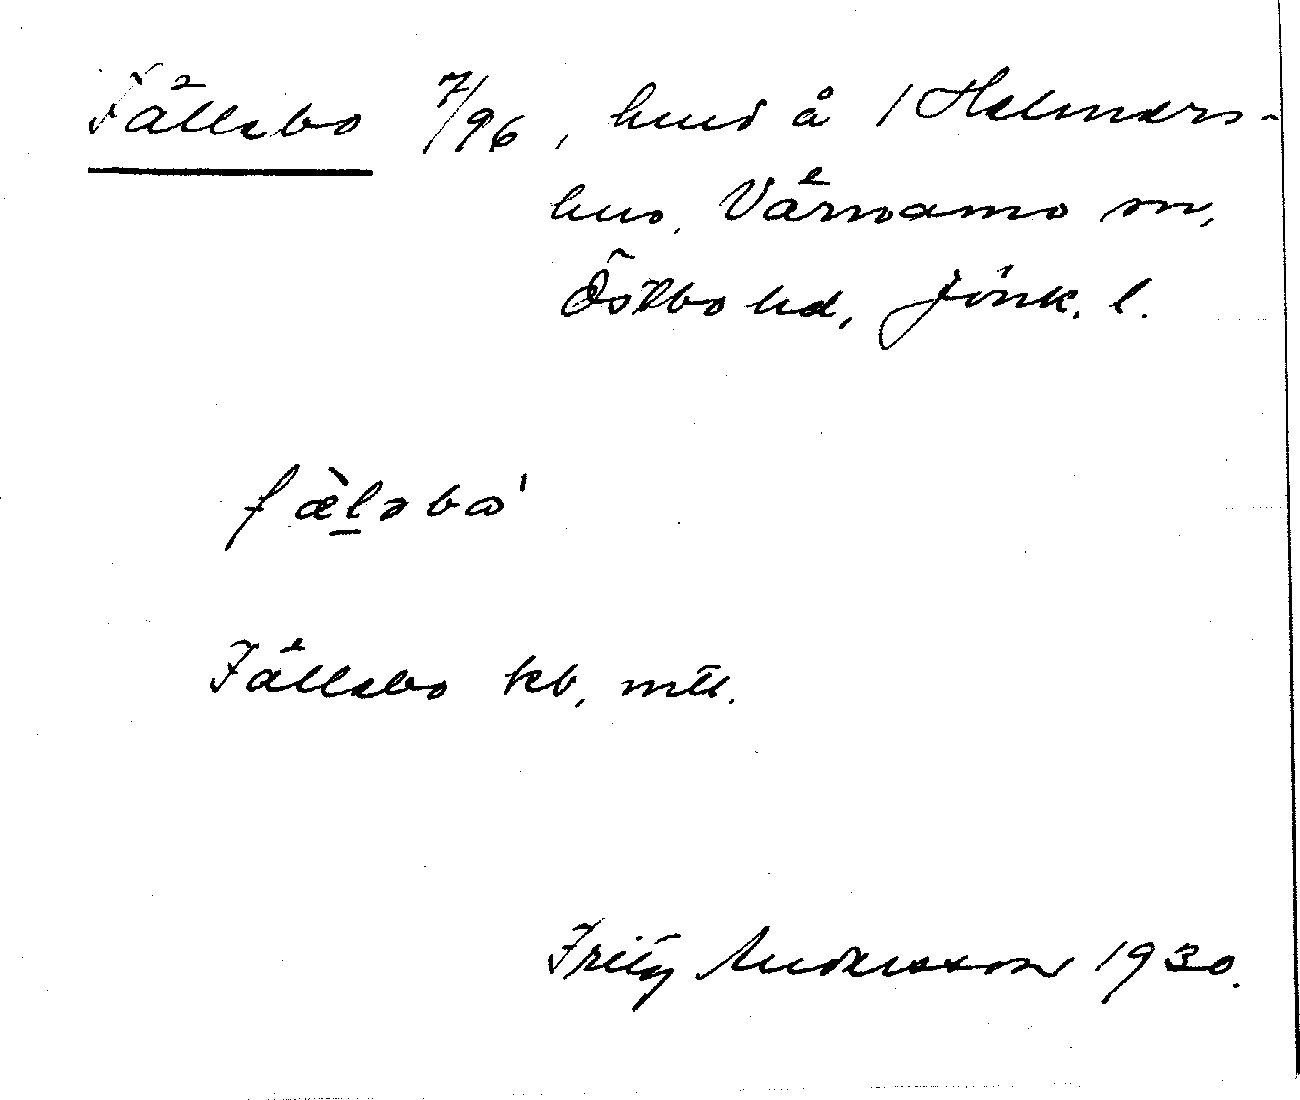 Fällebo 7/96, hmd å 1 Helmers-
hus, Värnamo sn,
Östbo hd, Jönk. l.
fæ̀l̲əbω'
Fällebo kb, mtl.
Fritz Andersson 1930.